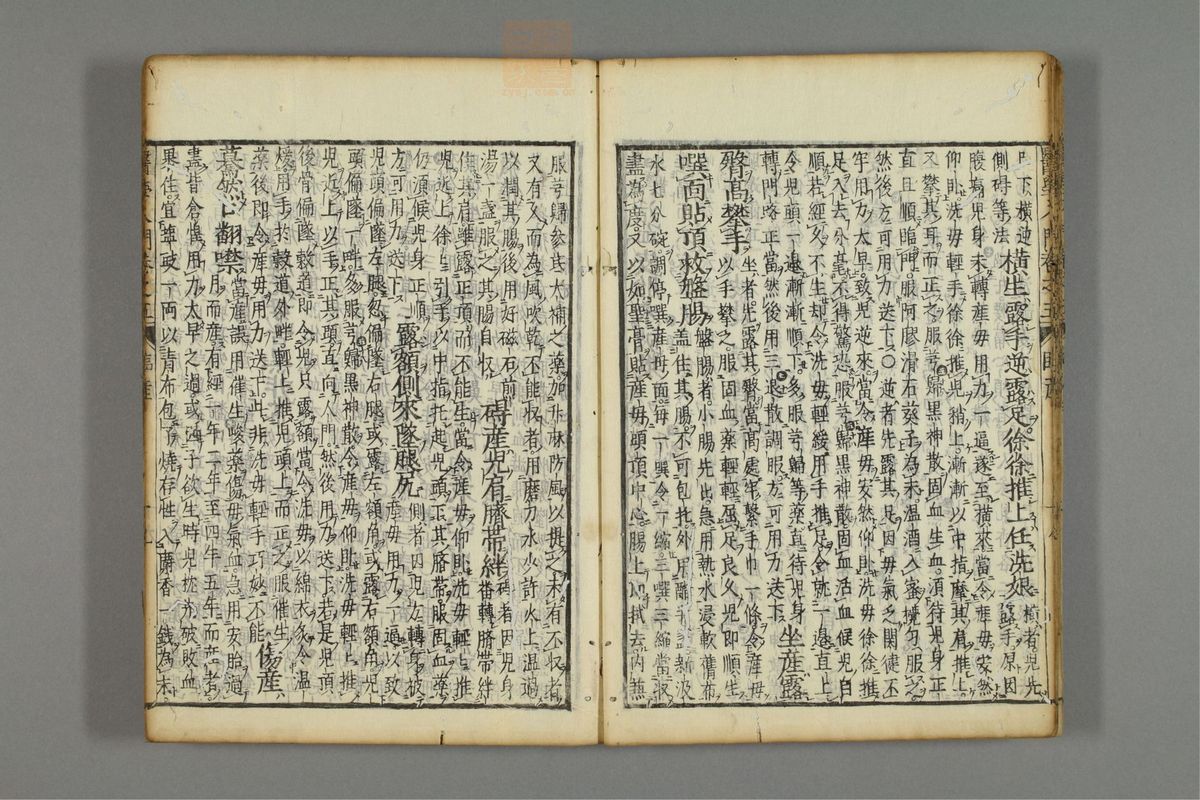 側碍等法橫生露手逆露足徐徐推上任洗娘橫者兒先露手原因
腹痛兒身未轉產母用力一逼遂至橫來當令產母安然
仰臥洗母輕手徐徐推兒稍上漸漸以中指摩其肩推上
又攀其耳而正之服芎歸黑神散固血生血須待兒身正
直且順臨門服阿膠滑石葵子為末溫酒入蜜攪勻服之
然後方可用力送下○逆者先露其足因母氣乏關德不
牢用力太早致兒逆來當令產母安然仰臥洗母徐徐推
足入去分毫不得驚恐服芎歸黑神散固血活血候兒自
順若經久不生却令洗母輕緩用手推足令就一邊直上
令兒頭一邊漸漸順下多服芎歸等藥直待兒身
轉門路正當然後用三退散調服方可用力送下坐產露
臀高攀手坐者兒露其臀當高處牢繫手巾一條令產母
以手攀之服固血藥輕輕屈足良久兒即順生
噀面貼頂救盤腸盤腸者小腸先出急用熱水浸軟舊布
蓋住其腸不可包扎外用醋半盞新汲
水七分碗調停噀產母面每一噀令一縮三噀三縮當收
盡為度又以如聖膏貼產母頭頂中心腸上加拭去內煎
服芎歸參芪大補之藥加升麻防風以提之未有不收者
又有久而為風吹乾不能收者用磨刀水少許火上溫過
以潤其腸後用好磁石煎
湯一盞服之其腸自收碍產兒肩臍帶絆碍者因兒身
番轉臍帶絆
住其肩雖露正頂而不能生當令產母仰臥洗母輕上推
兒近上徐上引手以中指托起兒頭下其胳帶服固血藥
仍須候兒身正順
方可用力送下露額側來墜腿死側者因兒方轉身被
產母用力一逼以致
兒頭偏墜左腿忽偏墜右腿或露左額角或露右額角兒
頭偏墜一畔多服芎歸黑神散令產母仰臥洗母輕上推
兒近上以手正其頭直向人門然後用力送下若是兒頂
後骨偏墜穀道即令兒只露額當令洗母以綿衣炙令溫
煖用手於穀道外畔輕上推兒頭上而正之服催生
藥後即令產母用力送下此非洗母輕手巧妙不能傷產
驀然亡翻噤當產誤用催生峻藥傷母氣血急用安胎
月而產有經一年二年至四年五年而產者
蓋昔倉惶用力太早之過或遇子欲生時兒枕亦破敗血